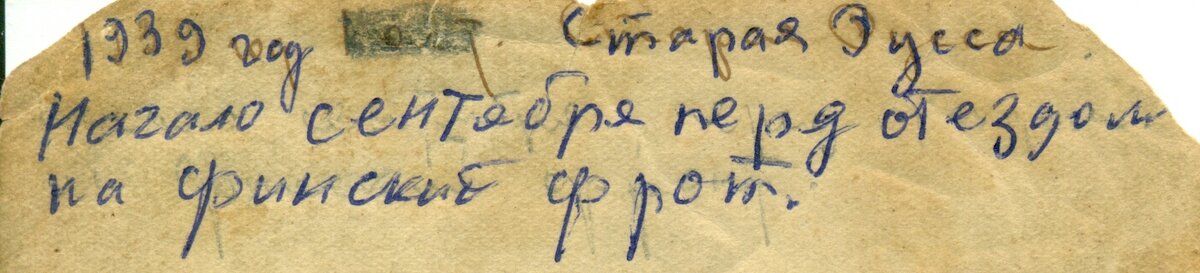 1939 год Старая Русса
Начало сентября перд отездом
на финский фрот.